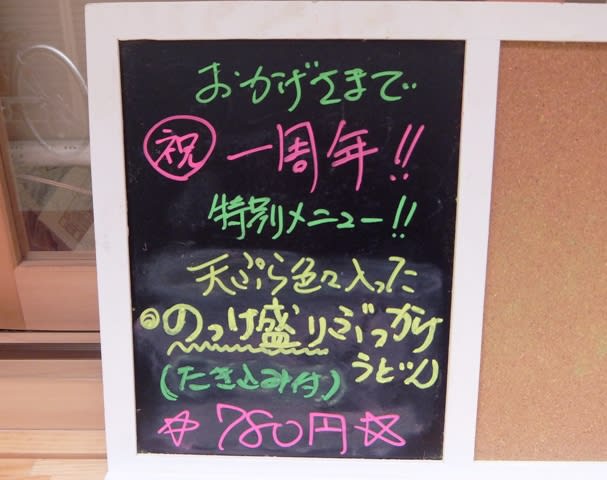 おかげさまで
祝 一周年!!
特別メニュー!!
天ぷら色々入った
のっけ盛りぶっかけ
うどん
(たき込み付)
☆780円☆